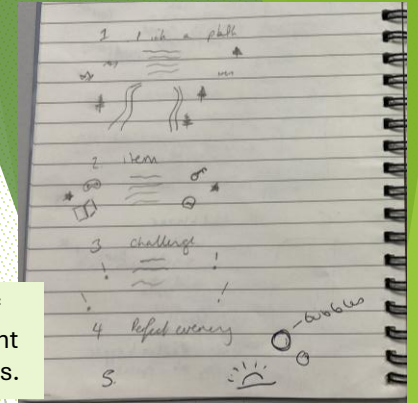 1 a path
2 item
3 challenge
! !
! !
4 Perfect evening
- bubbles
5.
nt
s.